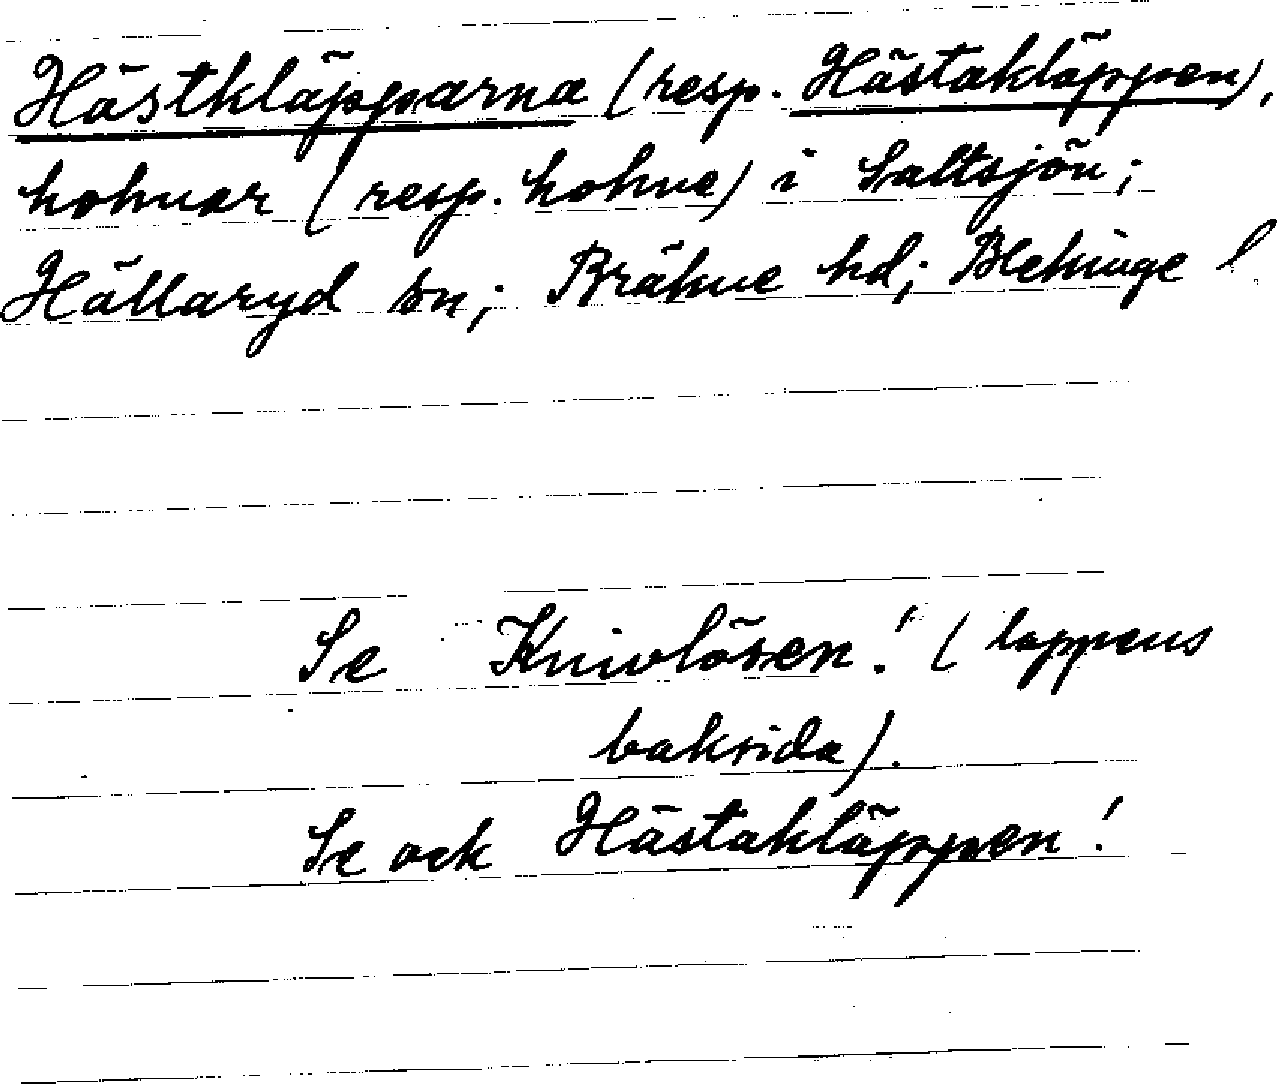 Hästkläpparna (resp. Hästakläppen),
holmar (resp. holme) i Saltsjön;
Hällaryd sn; Bräkne hd; Blekinge l
Se Knivlösen! (lappens
baksida).
Se ock Hästakläppen!